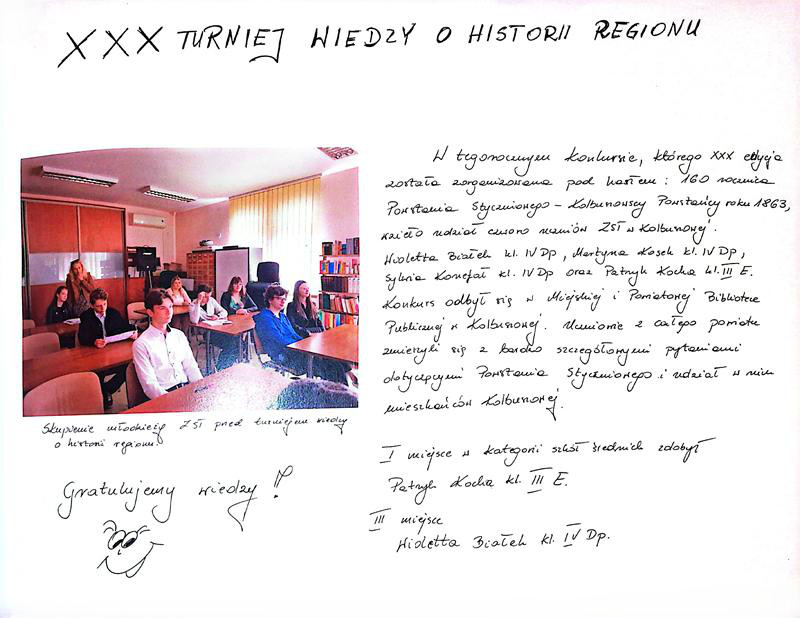 XXX TURNIEJ WIEDZY O HISTORII REGIONU
W tegorocznym konkursie, którego XXX edycja
została zorganizowana pod hasłem: 160 rocznica
Powstania Styczniowego - Kolbuszowscy Powstańcy roku 1863,
wzięło udział czworo uczniów ZSł w Kolbuszowej.
Wioletta Białek kl. IV Dp, Martyna Kosek kl. IV Dp,
Sylwia Konefał kl. IV Dp oraz Patryk Kocha kl. III E.
Konkurs odbył się w Miejskiej i Powiatowej Bibliotece
Publicznej w Kolbuszowej. Uczniowie z całego powiatu
zmierzyli się z bardzo szczegółowymi pytaniami
dotyczącymi Powstania Styczniowego i udział w nim
mieszkańców Kolbuszowej.
Skupienie młodzieży ZSł przed turniejem wiedzy
o historii regionu.
Gratulujemy wiedzy !!
I miejsce w kategorii szkół średnich zdobył
Patryk Kocha kl. III E.
III miejsce
Wioletta Białek kl. IV Dp.